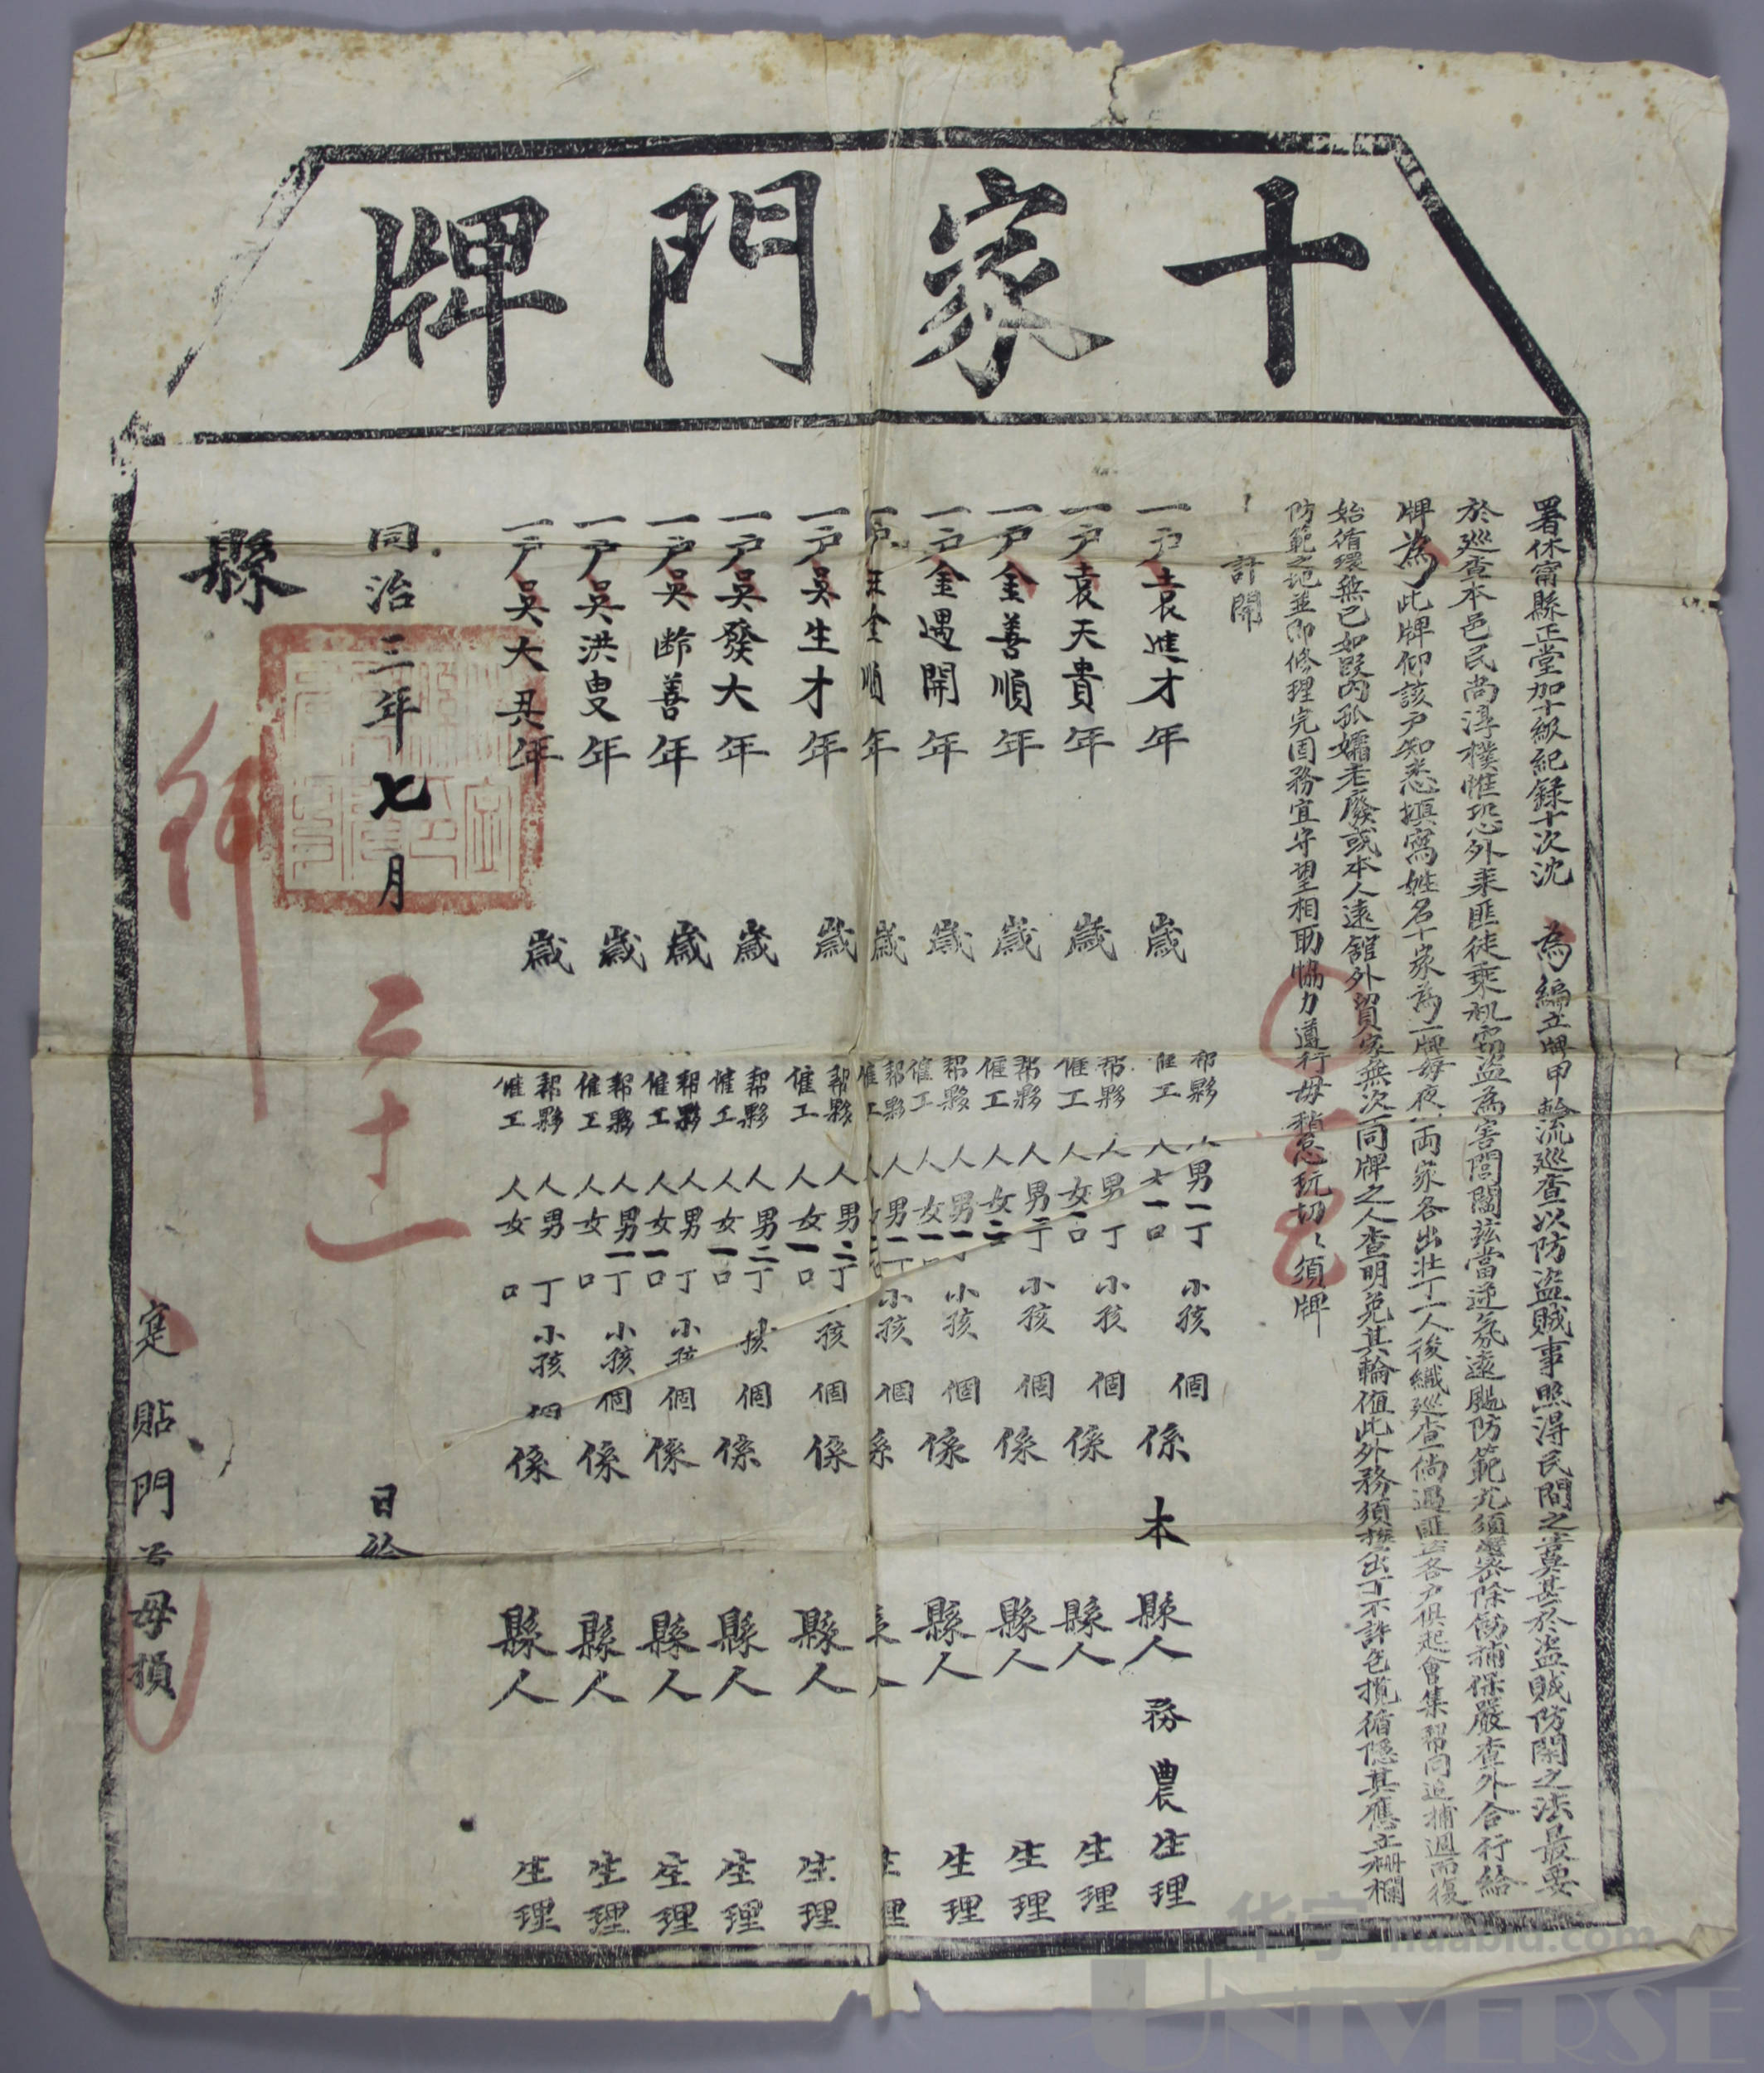 十家門牌
署休甯縣正堂加十級紀錄十次沈 為編立牌甲輪流巡查以防盜賊事照得民間之害莫甚於盜賊防閑之法最要
於巡查本邑民尚淳樸惟恐外來匪徒乘機竊盜為害閭閻茲當逆氛遠颺防範尤須嚴密除飭捕保嚴查外合行給
牌為此牌仰該戶知悉填寫姓名十家為一牌每夜兩家各出壯丁一人後織巡查倘遇匪各戶俱起會集幫同追捕週而復
始循環無已如段內孤孀老廢或本人遠館外貿家無次同牌之人查明免其輪值此外務須撥出丁不許包攬循隱其應立柵欄
防範之地並即修理完固務宜守望相助協力遵行毋稍怠玩切切須牌
計開
一戶袁進才年 歲 幫夥 人 僱工 人 男一丁 女一口 小孩 個 係本縣人 務農生理
一戶袁天貴年 歲 幫夥 人 僱工 人 男 丁 女一口 小孩 個 係 縣人 生理
一戶金善順年 歲 幫夥 人 僱工 人 男二丁 女二口 小孩 個 係 縣人 生理
一戶金遇開年 歲 幫夥 人 僱工 人 男一丁 女一口 小孩 個 係 縣人 生理
戶 金順年 歲 幫夥 人 僱工 人 男一丁 小孩 個 係 人 生理
一戶吳生才年 歲 幫夥 人 僱工 人 男二丁 女一口 小孩 個 係 縣人 生理
一戶吳發大年 歲 幫夥 人 僱工 人 男二丁 女一口 小孩 個 係 縣人 生理
一戶吳齡善年 歲 幫夥 人 僱工 人 男 丁 女一口 小孩 個 係 縣人 生理
一戶吳洪叟年 歲 幫夥 人 僱工 人 男一丁 女 口 小孩 個 係 縣人 生理
一戶吳大丑年 歲 幫夥 人 僱工 人 男 丁 女 口 小孩 個 係 縣人 生理
同治三年七月二十一日給
縣 行
實貼門首毋損
华宇 huabid.com
UNIVERSE